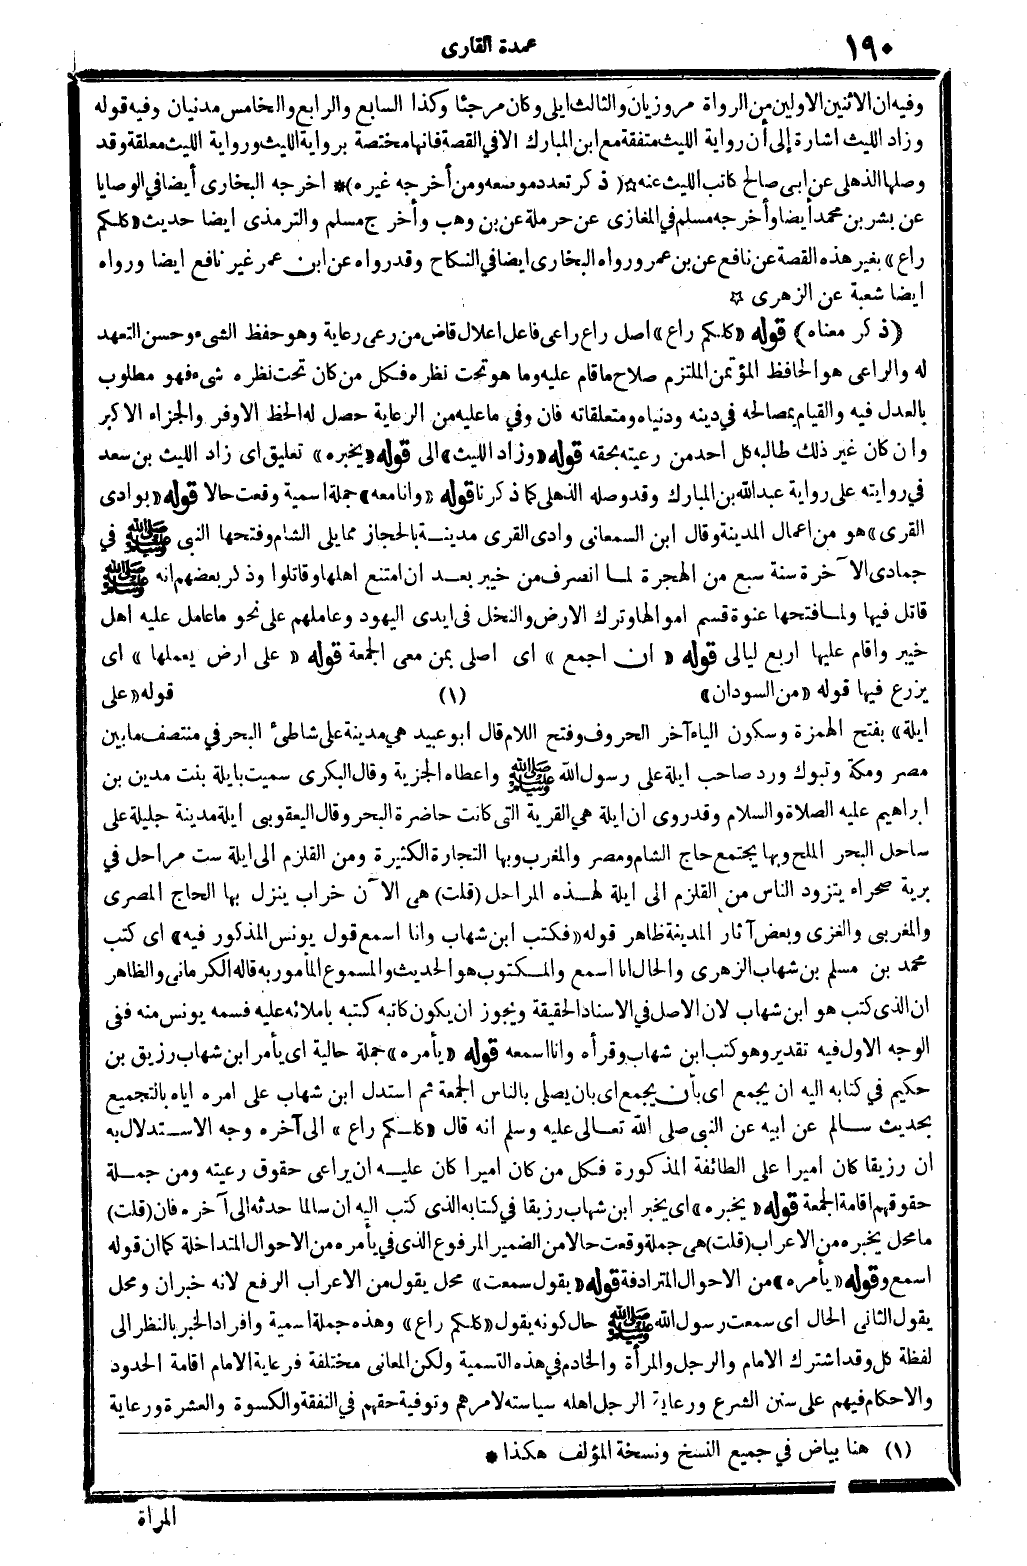 ١٩٠
عمدة القارى
وفيه ان الاثنين الاولين من الرواة مروزيان والثالث ايلى وكان مرجئا وكذا السابع والرابع والخامس مدنيان وفيه قوله
وزاد الليث اشارة إلى أن رواية الليث متفقة مع ابن المبارك الا فى القصة فانها مختصة برواية الليث ورواية الليث معلقة وقد
وصلها الذهلى عن ابى صالح كاتب الليث عنه ☆ ( ذكر تعدد موضعه ومن أخرجه غيره )* اخرجه البخارى أيضا فى الوصايا
عن بشر بن محمد أيضا وأخرجه مسلم فى المغازى عن حرملة عن بن وهب وأخرج مسلم والترمذى ايضا حديث «كلكم
راع» بغير هذه القصة عن نافع عن بن عمر ورواه البخارى ايضا فى النكاح وقد رواه عن ابن عمر غير نافع ايضا ورواه
ايضا شعبة عن الزهرى ☆
(ذكر معناه) قوله «كلكم راع» اصل راع راعى فاعل اعلال قاض من رعى رعاية وهو حفظ الشىء وحسن التعهد
له والراعى هو الحافظ المؤتمن الملتزم صلاح ما قام عليه وما هو تحت نظره فكل من كان تحت نظره شىء فهو مطلوب
بالعدل فيه والقيام بمصالحه فى دينه ودنياه ومتعلقاته فان وفي ما عليه من الرعاية حصل له الحظ الاوفر والجزاء الاكبر
وان كان غير ذلك طالبه كل احد من رعيته بحقه قوله «وزاد الليث» الى قوله «يخبره» تعليق اى زاد الليث بن سعد
في روايته على رواية عبد الله بن المبارك وقد وصله الذهلى كما ذكرنا قوله «وانا معه» جملة اسمية وقعت حالا قوله «بوادى
القرى» هو من اعمال المدينة وقال ابن السمعانى وادى القرى مدينة بالحجاز مما يلى الشام وفتحها النبى ﷺ في
جمادى الآخرة سنة سبع من الهجرة لما انصرف من خيبر بعد ان امتنع اهلها وقاتلوا وذكر بعضهم انه ﷺ
قاتل فيها ولما فتحها عنوة قسم اموالها وترك الارض والنخل فى ايدى اليهود وعاملهم على نحو ما عامل عليه اهل
خيبر واقام عليها اربع ليالى قوله «ان اجمع» اى اصلى بمن معى الجمعة قوله «على ارض يعملها» اى
يزرع فيها قوله «من السودان» (١) قوله «على
ايلة» بفتح الهمزة وسكون الياء آخر الحروف وفتح اللام قال ابو عبيد هي مدينة على شاطئ البحر في منتصف ما بين
مصر ومكة وتبوك ورد صاحب ايلة على رسول الله ﷺ واعطاه الجزية وقال البكرى سميت بايلة بنت مدين بن
ابراهيم عليه الصلاة والسلام وقد روى ان ايلة هي القرية التى كانت حاضرة البحر وقال اليعقوبى ايلة مدينة جليلة على
ساحل البحر الملح وبها يجتمع حاج الشام ومصر والمغرب وبها التجارة الكثيرة ومن القلزم الى ايلة ست مراحل في
برية صحراء يتزود الناس من القلزم الى ايلة لهذه المراحل (قلت) هى الآن خراب ينزل بها الحاج المصرى
والمغربى والغزى وبعض آثار المدينة ظاهر قوله «فكتب ابن شهاب وانا اسمع قول يونس المذكور فيه» اى كتب
محمد بن مسلم بن شهاب الزهرى والحال انا اسمع والمكتوب هو الحديث والمسموع المأمور به قاله الكرمانى والظاهر
ان الذى كتب هو ابن شهاب لان الاصل فى الاسناد الحقيقة ويجوز ان يكون كاتبه كتبه باملائه عليه فسمه يونس منه ففى
الوجه الاول فيه تقدير وهو كتب ابن شهاب وقرأه وانا اسمعه قوله «يأمره» جملة حالية اى يأمر ابن شهاب رزيق بن
حكيم في كتابه اليه ان يجمع اى بأن يجمع اى بان يصلى بالناس الجمعة ثم استدل ابن شهاب على امره اياه بالتجميع
بحديث سالم عن ابيه عن النبى صلى الله تعالى عليه وسلم انه قال «كلكم راع» الى آخره وجه الاستدلال به
ان رزيقا كان اميرا على الطائفة المذكورة فكل من كان اميرا كان عليه ان يراعى حقوق رعيته ومن جملة
حقوقهم اقامة الجمعة قوله «يخبره» اى يخبر ابن شهاب رزيقا في كتابه الذى كتب اليه ان سالما حدثه الى آخره فان (قلت)
ما محل يخبره من الاعراب (قلت) هى جملة وقعت حالا من الضمير المرفوع الذى في يأمره من الاحوال المتداخلة كما ان قوله
اسمع وقوله «يأمره» من الاحوال المترادفة قوله «يقول سمعت» محل يقول من الاعراب الرفع لانه خبران ومحل
يقول الثانى الحال اى سمعت رسول الله ﷺ حال كونه يقول «كلكم راع» وهذه جملة اسمية وافراد الخبر بالنظر الى
لفظة كل وقد اشترك الامام والرجل والمرأة والخادم في هذه التسمية ولكن المعانى مختلفة فرعاية الامام اقامة الحدود
والاحكام فيهم على سنن الشرع ورعاية الرجل اهله سياسته لامرهم وتوفية حقهم في النفقة والكسوة والعشرة ورعاية
(١) هنا بياض في جميع النسخ ونسخة المؤلف هكذا *
المرأة